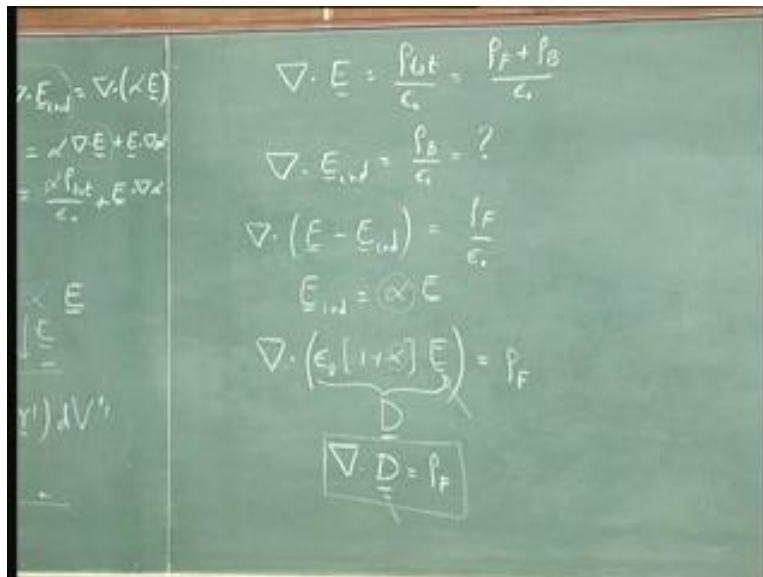 ∇·E_ind = ∇·(αE)
= α∇·E + E·∇α
= αρ_tot/ε₀ + E·∇α
α E
E
r')dV'
∇·E = ρ_tot/ε₀ = (ρ_F + ρ_B)/ε₀
∇·E_ind = ρ_B/ε₀ = ?
∇·(E − E_ind) = ρ_F/ε₀
E_ind = α E
∇·(ε₀[1+α] E) = ρ_F
D
∇·D = ρ_F